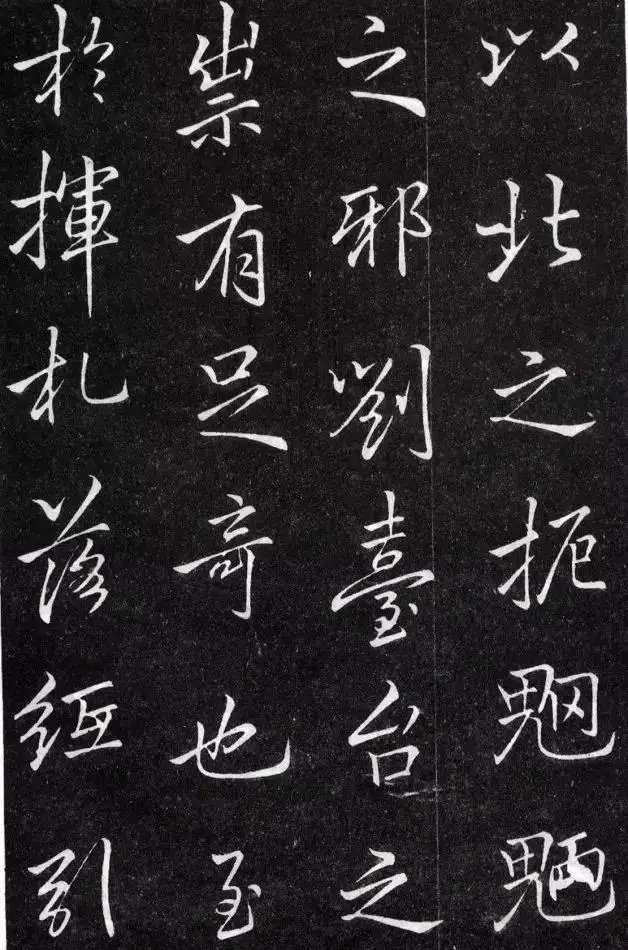 以此之扼魍魎
之邪劉臺台之
祟有足奇也至
於揮札落紙引